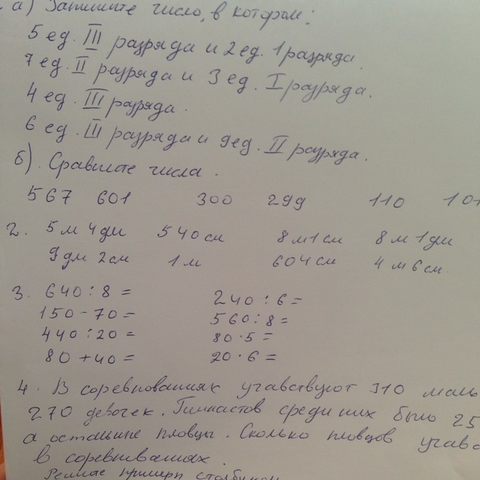 а) Запишите число, в котором:
5 ед. III разряда и 2 ед. 1 разряда.
7 ед. II разряда и 3 ед. I разряда.
4 ед. III разряда.
6 ед. III разряда и 9 ед. II разряда.
б). Сравните числа.
567 601 300 299 110 101
2. 5м 4дм 540 см 8м 1см 8м 1дм
9дм 2см 1м 604 см 4м 6см
3. 640 : 8 = 240 : 6 =
150 - 70 = 560 : 8 =
440 : 20 = 80 · 5 =
80 + 40 = 20 · 6 =
4. В соревнованиях учавствуют 310 маль
270 девочек. Гимнастов среди них было 25
а остальные пловцы. Сколько пловцов учавс
в соревнованиях.
Решите примеры столбиком